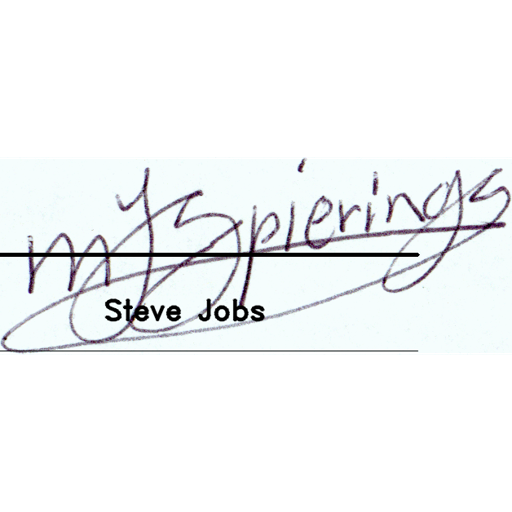 mySpierings
Steve Jobs